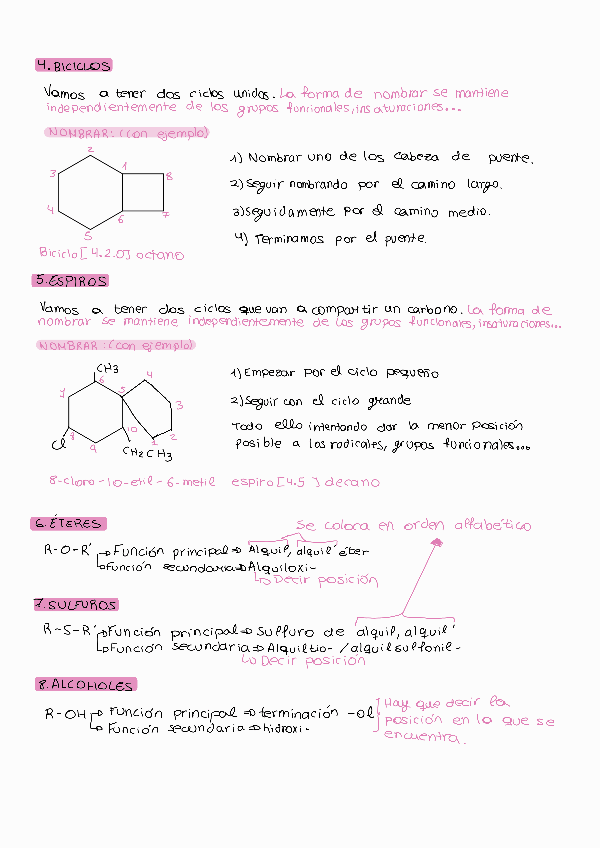 4. BICICLOS
Vamos a tener dos ciclos unidos. La forma de nombrar se mantiene
independientemente de los grupos funcionales, insaturaciones...
NOMBRAR: (con ejemplo)
2
3
1
8
4
6
7
5
Biciclo [4.2.0] octano
1) Nombrar uno de los cabeza de puente.
2) Seguir nombrando por el camino largo.
3) Seguidamente por el camino medio.
4) Terminamos por el puente.
5. ESPIROS
Vamos a tener dos ciclos que van a compartir un carbono. La forma de
nombrar se mantiene independientemente de los grupos funcionales, insaturaciones...
NOMBRAR: (con ejemplo)
CH3
6
4
7
5
3
10
2
Cl
8
9
1
CH2CH3
1) Empezar por el ciclo pequeño
2) Seguir con el ciclo grande
Todo ello intentando dar la menor posición
posible a los radicales, grupos funcionales...
8-cloro-10-etil-6-metil espiro [4.5] decano
6. ÉTERES
Se coloca en orden alfabético
R-O-R' Función principal ⇒ Alquil, alquil' éter
Función secundaria ⇒ Alquiloxi-
Decir posición
7. SULFUROS
R-S-R' Función principal ⇒ Sulfuro de alquil, alquil'
Función secundaria ⇒ Alquiltio- / alquilsulfonil-
Decir posición
8. ALCOHOLES
R-OH Función principal ⇒ terminación -ol
Función secundaria ⇒ hidroxi-
Hay que decir la
posición en la que se
encuentra.